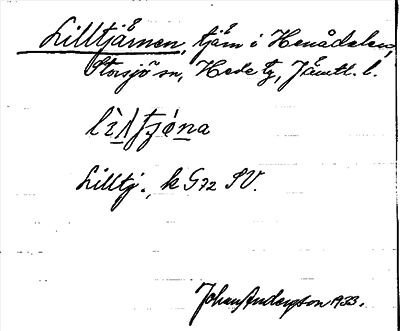 Lilltjärnen, tjärn i Henådalen,
Storsjö sn, Hede tg, Jämtl. l.
lìltjǿna
Lilltj., k G72 SV.
Johan Anderson 1933.